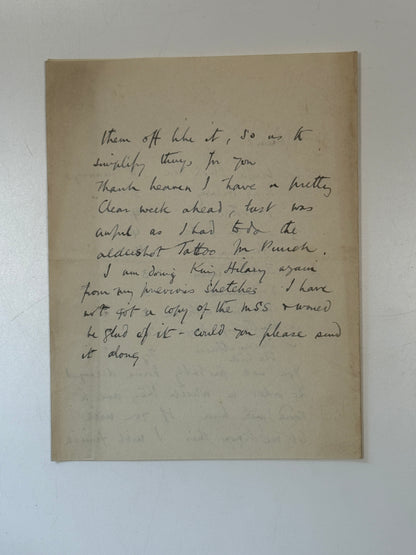 them off like it, so as to
simplify things for you
Thank heaven I have a pretty
Clear week ahead, last was
awful as I had to do the
aldershot Tattoo for Punch.
I am doing King Hilary again
from my previous sketches I have
not got a copy of the MSS & would
be glad of it - could you please send
it along